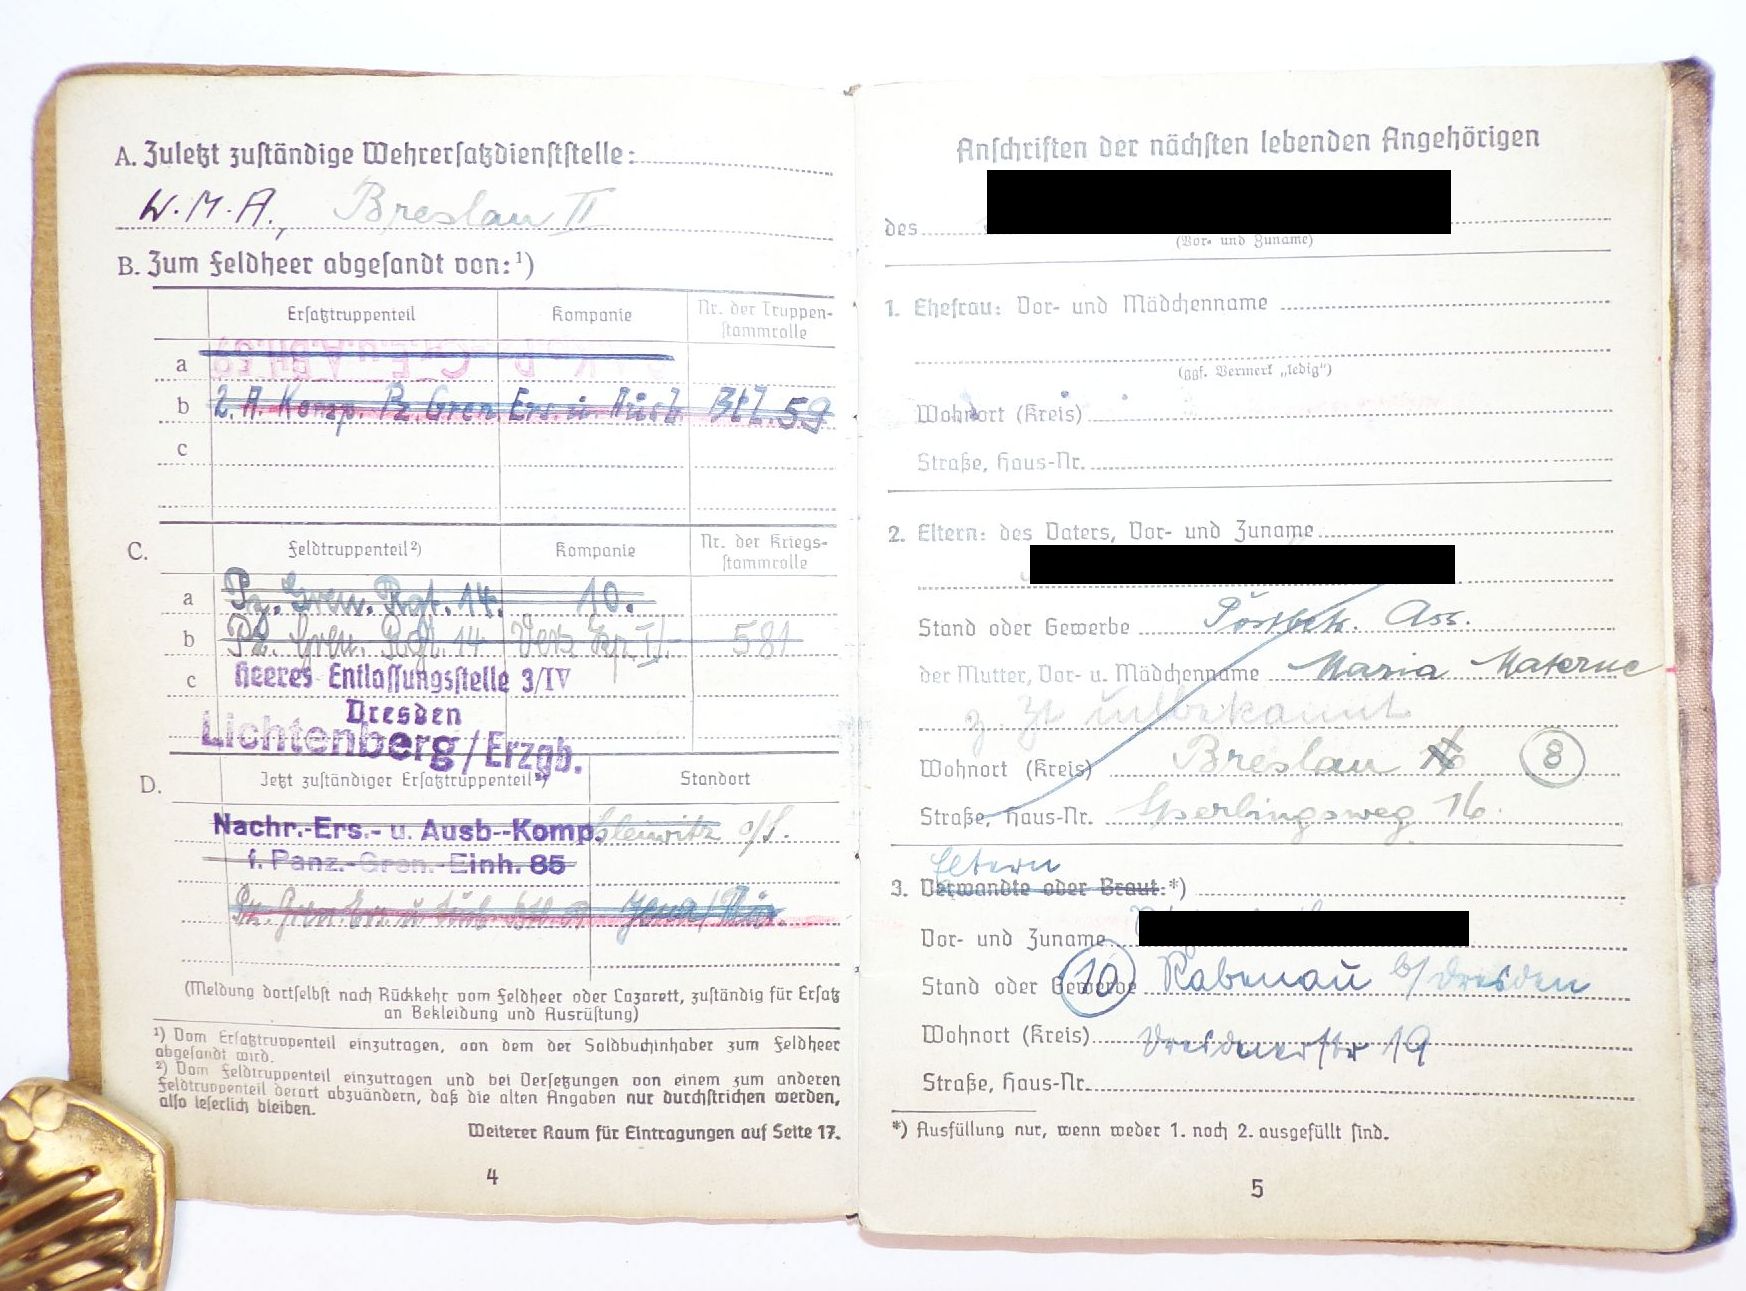 A. Zuletzt zuständige Wehrersatzdienststelle:
W.M.A., Breslau II
B. Zum Feldheer abgesandt von:¹)
Ersatztruppenteil Kompanie Nr. der Truppen-
stammrolle
a
b 2. A. Komp. Pz. Gren. Ers. u. Ausb. Btl. 59
c
C. Feldtruppenteil²) Kompanie Nr. der Kriegs-
stammrolle
a Pz. Gren. Rgt. 14. 10.
b Pz. Gren. Rgt. 14 581
c Heeres Entlassungsstelle 3/IV
Dresden
Lichtenberg/Erzgb.
D. Jetzt zuständiger Ersatztruppenteil²) Standort
Nachr.-Ers.- u. Ausb--Komp. Gleiwitz o/S.
f. Panz.-Gren.-Einh. 85
Pz. Gren. Ers. u. Ausb. Btl. Jena/Thür.
(Meldung dortselbst nach Rückkehr vom Feldheer oder Lazarett, zuständig für Ersatz
an Bekleidung und Ausrüstung)
¹) Vom Ersatztruppenteil einzutragen, von dem der Soldbuchinhaber zum Feldheer
abgesandt wird.
²) Vom Feldtruppenteil einzutragen und bei Versetzungen von einem zum anderen
Feldtruppenteil derart abzuändern, daß die alten Angaben nur durchstrichen werden,
also leserlich bleiben.
Weiterer Raum für Eintragungen auf Seite 17.
4
Anschriften der nächsten lebenden Angehörigen
des
(Vor- und Zuname)
1. Ehefrau: Vor- und Mädchenname
(ggf. Vermerk „ledig")
Wohnort (Kreis)
Straße, Haus-Nr.
2. Eltern: des Vaters, Vor- und Zuname
Stand oder Gewerbe Postbetr. Ass.
der Mutter, Vor- u. Mädchenname Maria Materne
z. Zt unbekannt
Wohnort (Kreis) Breslau 8
Straße, Haus-Nr. Sperlingsweg 16.
Eltern
3. Verwandte oder Braut:*)
Vor- und Zuname
Stand oder Gewerbe 10 Rabenau b/Dresden
Wohnort (Kreis) Dresdnerstr 19
Straße, Haus-Nr.
*) Ausfüllung nur, wenn weder 1. noch 2. ausgefüllt sind.
5